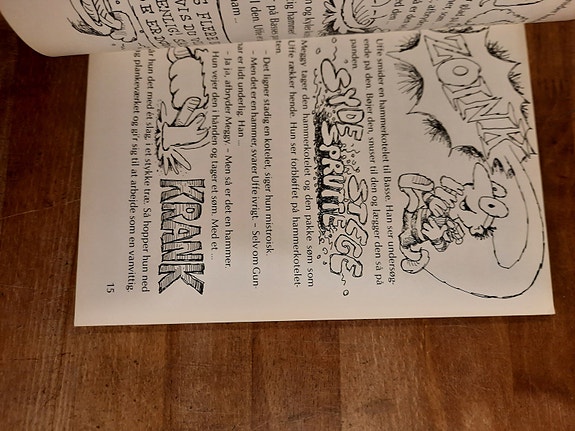 ZOINK
Uffe smider en hammerkotelet til Basse. Han ser undersøg-
ende på den. Bøjer den, snuser til den og lægger den så på
panden.
SYDE STEGE
SPRUTTE
Meggy tager den hammerkotelet og den pakke søm som
Uffe rækker hende. Hun ser forbløffet på hammerkotelet-
– Det ligner stadig en kotelet, siger hun mistroisk.
– Men det er en hammer, svarer Uffe ivrigt. – Selv om Gun-
nar er lidt underlig. Han ...
– Ja ja, afbryder Meggy. – Men så er det en hammer.
Hun vejer den i hånden og tager et søm. Med et ...
KRANK
slår hun det med ét slag, i et stykke træ. Så hopper hun ned
plankeværket og gir sig til at arbejde som en vanvittig.
15
FLERE
VIS DU